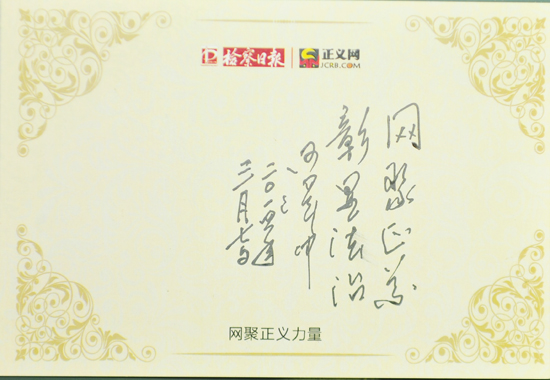 检察日报 正义网
JCRB.COM
网聚正义
彰显法治
二〇一四年
三月七日
网聚正义力量